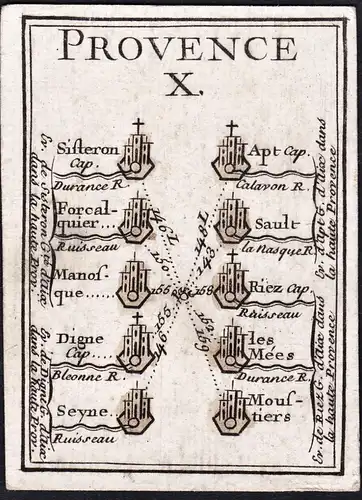 PROVENCE
X.
Sisteron
Cap.
Durance R.
Forcal-
quier
Ruisseau
Manos-
que
Digne
Cap.
Bleonne R.
Seyne
Ruisseau
Apt Cap.
Calavon R.
Sault
la Nasque R.
Riez Cap.
Ruisseau
les
Mées
Durance R.
Mous-
tiers
155
158
148 L
143
155
146
Ev. de Sisteron G. d'Aix
dans la haute Prov.
Ev. de Digne G. d'Aix
dans la haute Prov.
Ev. d'Apt G. d'Aix dans
la haute Provence
Ev. de Riez G. d'Aix dans
la haute Provence